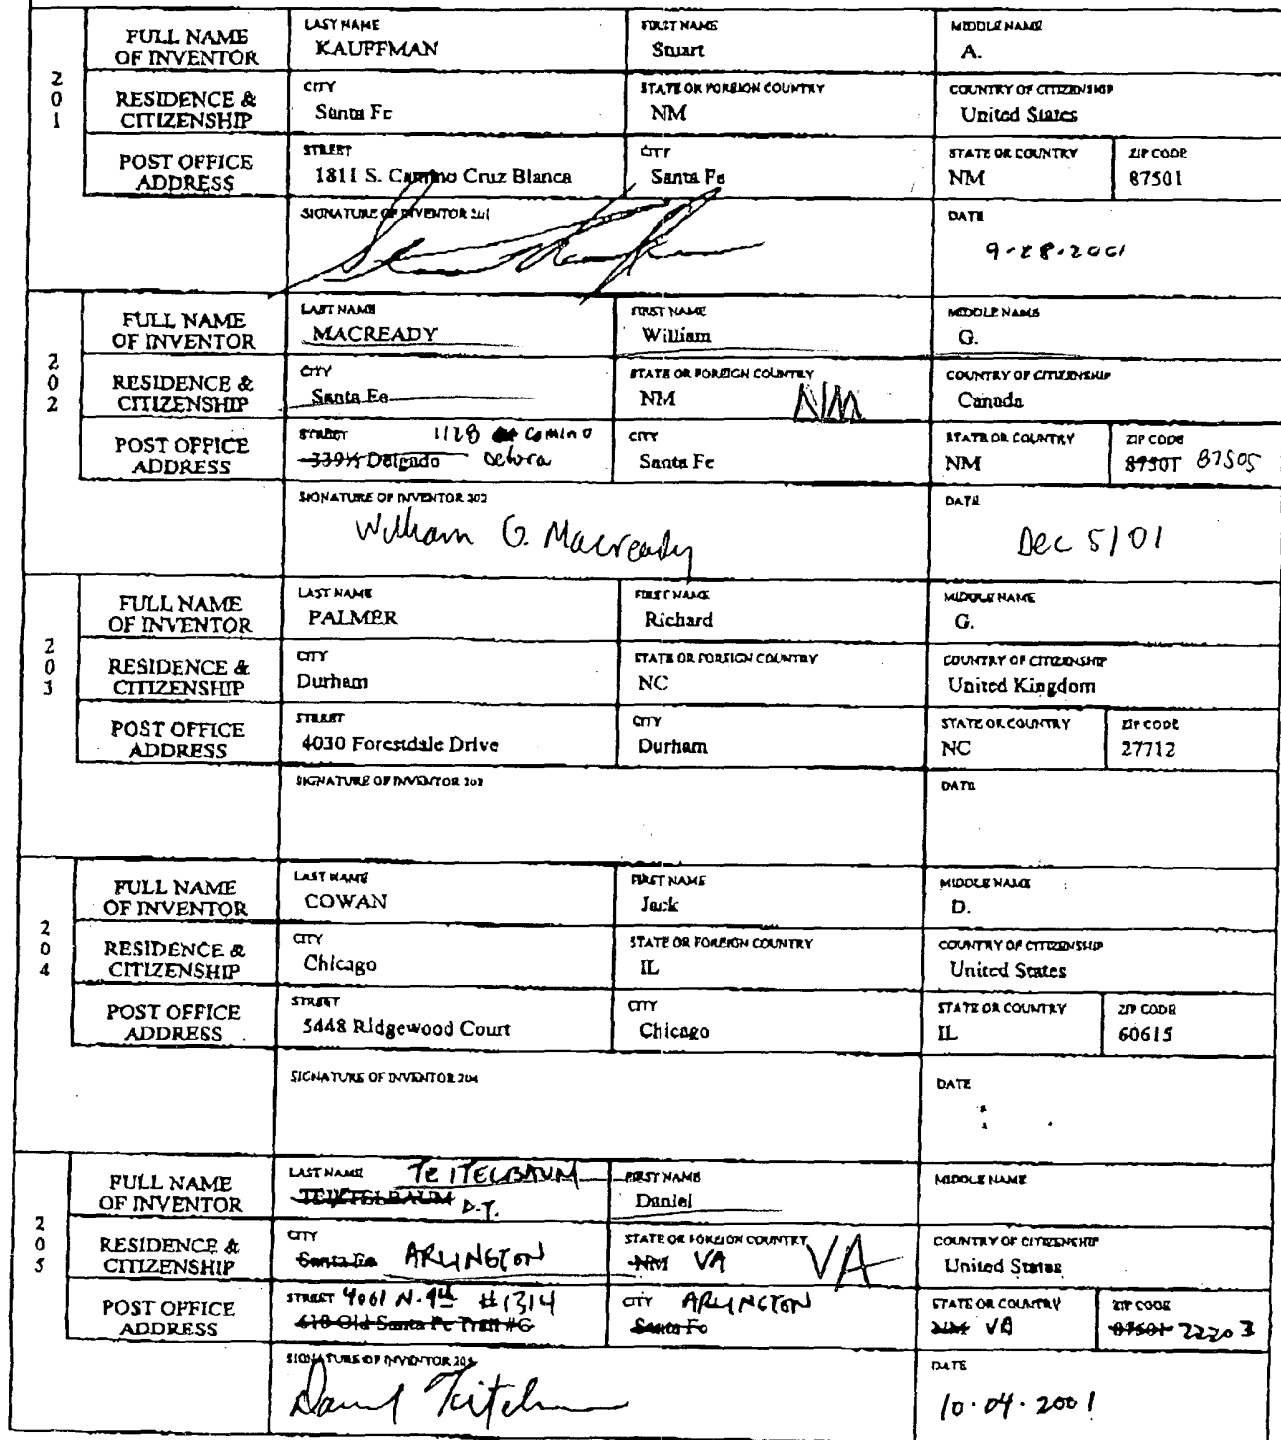 FULL NAME OF INVENTOR
LAST NAME
KAUFFMAN
FIRST NAME
Stuart
MIDDLE NAME
A.
201
RESIDENCE & CITIZENSHIP
CITY
Santa Fe
STATE OR FOREIGN COUNTRY
NM
COUNTRY OF CITIZENSHIP
United States
POST OFFICE ADDRESS
STREET
1811 S. Camino Cruz Blanca
CITY
Santa Fe
STATE OR COUNTRY
NM
ZIP CODE
87501
SIGNATURE OF INVENTOR 201
DATE
9-28-2001
FULL NAME OF INVENTOR
LAST NAME
MACREADY
FIRST NAME
William
MIDDLE NAME
G.
202
RESIDENCE & CITIZENSHIP
CITY
Santa Fe
STATE OR FOREIGN COUNTRY
NM NM
COUNTRY OF CITIZENSHIP
Canada
POST OFFICE ADDRESS
STREET 1128 Camino
339½ Delgado Delora
CITY
Santa Fe
STATE OR COUNTRY
NM
ZIP CODE
87501 87505
SIGNATURE OF INVENTOR 202
William G. Macready
DATE
Dec 5/01
FULL NAME OF INVENTOR
LAST NAME
PALMER
FIRST NAME
Richard
MIDDLE NAME
G.
203
RESIDENCE & CITIZENSHIP
CITY
Durham
STATE OR FOREIGN COUNTRY
NC
COUNTRY OF CITIZENSHIP
United Kingdom
POST OFFICE ADDRESS
STREET
4030 Forestdale Drive
CITY
Durham
STATE OR COUNTRY
NC
ZIP CODE
27712
SIGNATURE OF INVENTOR 203
DATE
FULL NAME OF INVENTOR
LAST NAME
COWAN
FIRST NAME
Jack
MIDDLE NAME
D.
204
RESIDENCE & CITIZENSHIP
CITY
Chicago
STATE OR FOREIGN COUNTRY
IL
COUNTRY OF CITIZENSHIP
United States
POST OFFICE ADDRESS
STREET
5448 Ridgewood Court
CITY
Chicago
STATE OR COUNTRY
IL
ZIP CODE
60615
SIGNATURE OF INVENTOR 204
DATE
FULL NAME OF INVENTOR
LAST NAME TEITELBAUM
D.T.
FIRST NAME
Daniel
MIDDLE NAME
205
RESIDENCE & CITIZENSHIP
CITY
Santa Fe ARLINGTON
STATE OR FOREIGN COUNTRY
NM VA VA
COUNTRY OF CITIZENSHIP
United States
POST OFFICE ADDRESS
STREET 4001 N. 9th #1314
618 Old Santa Fe Trail #G
CITY ARLINGTON
Santa Fe
STATE OR COUNTRY
NM VA
ZIP CODE
87501 22203
SIGNATURE OF INVENTOR 205
Daniel Teitelbaum
DATE
10.04.2001